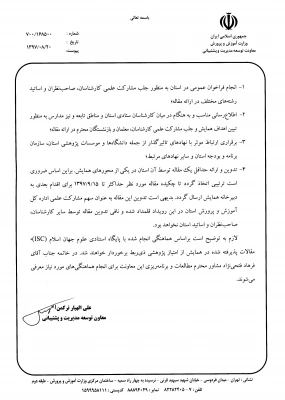 باسمه تعالی
جمهوری اسلامی ایران
وزارت آموزش و پرورش
معاونت توسعه مدیریت و پشتیبانی
شماره : ۷۰۰/۱۶۸۵۰۰
تاریخ : ۱۳۹۷/۰۸/۲۰
پیوست:
۱- انجام فراخوان عمومی در استان به منظور جلب مشارکت علمی کارشناسان، صاحب‌نظران و اساتید
رشته‌های مختلف در ارائه مقاله؛
۲- اطلاع‌رسانی مناسب و به هنگام در میان کارشناسان ستادی استان و مناطق تابعه و نیز مدارس به منظور
تبیین اهداف همایش و جلب مشارکت علمی کارشناسان، معلمان و بازنشستگان محترم در ارائه مقاله؛
۳- برقراری ارتباط موثر با نهادهای تاثیرگذار از جمله دانشگاه‌ها و موسسات پژوهشی استان، سازمان
برنامه و بودجه استان و سایر نهادهای مرتبط؛
۴- تدوین و ارائه حداقل یک مقاله توسط آن استان در یکی از محورهای همایش. براین اساس ضروری
است ترتیبی اتخاذ گردد تا چکیده مقاله مورد نظر حداکثر تا ۱۳۹۷/۹/۱۵ برای اقدام بعدی به
دبیرخانه همایش ارسال گردد. بدیهی است تدوین این مقاله به عنوان سهم مشارکت علمی اداره کل
آموزش و پرورش استان در این رویداد قلمداد شده و نافی تدوین مقاله توسط سایر کارشناسان،
صاحب‌نظران و اساتید استان نخواهد بود.
لازم به توضیح است براساس هماهنگی انجام شده با پایگاه استنادی علوم جهان اسلام (ISC)،
مقالات پذیرفته شده در همایش از امتیاز پژوهشی ذیربط برخوردار خواهند شد. در خاتمه جناب آقای
فرهاد فتحی‌نژاد مشاور محترم مطالعات و برنامه‌ریزی این معاونت برای انجام هماهنگی‌های مورد نیاز معرفی
می‌شوند.
علی الهیار ترکمن
معاون توسعه مدیریت و پشتیبانی
نشانی : تهران - میدان فردوسی - خیابان شهید سپهبد قرنی - نرسیده به چهار راه سمیه - ساختمان مرکزی وزارت آموزش و پرورش - طبقه دوم